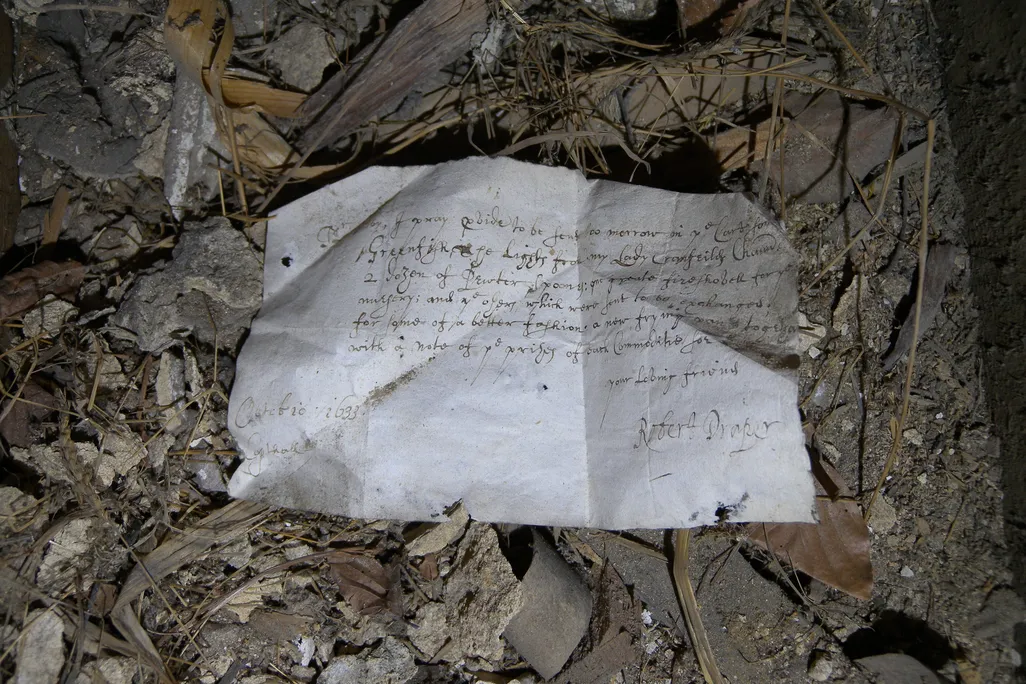 I pray pvide to be sent too morrow in ye Cart some
Greenfish, The Lights from my Lady Cranfeilds Cham
2 dozen of Pewter spoons: one greate fireshovell for ye
nursery; and ye others which were sent to be exchanged
for some of a better fashion, a new frying pan together
with a note of ye prises of such Commodities for
your loving friend
Robert Draper
Octobre 1633
Copthall